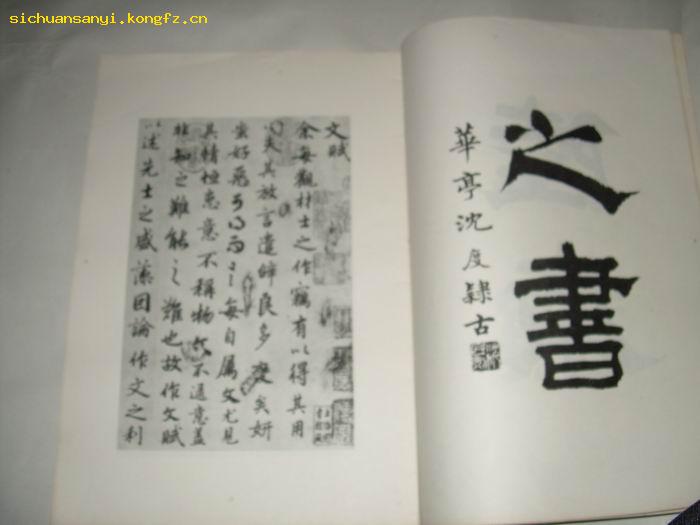 sichuansanyi.kongfz.cn
之書
華亭沈度隸古
文賦
余每觀材士之作竊有以得其用
心夫其放言遣辭良多變矣妍
蚩好惡可得而言每自属文尤見
其情恒患意不稱物文不逮意盖
非知之難能之難也故作文賦
以述先士之盛藻因論作文之利